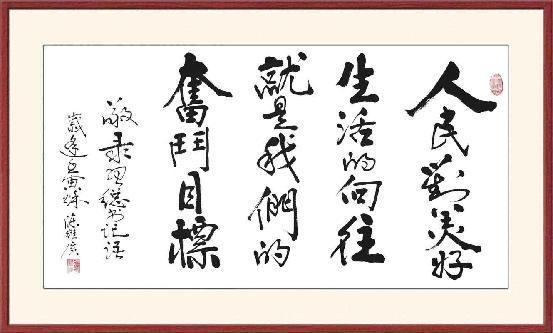 人民對美好
生活的向往
就是我們的
奮鬥目標
敬录習總书记语
歲逢寅